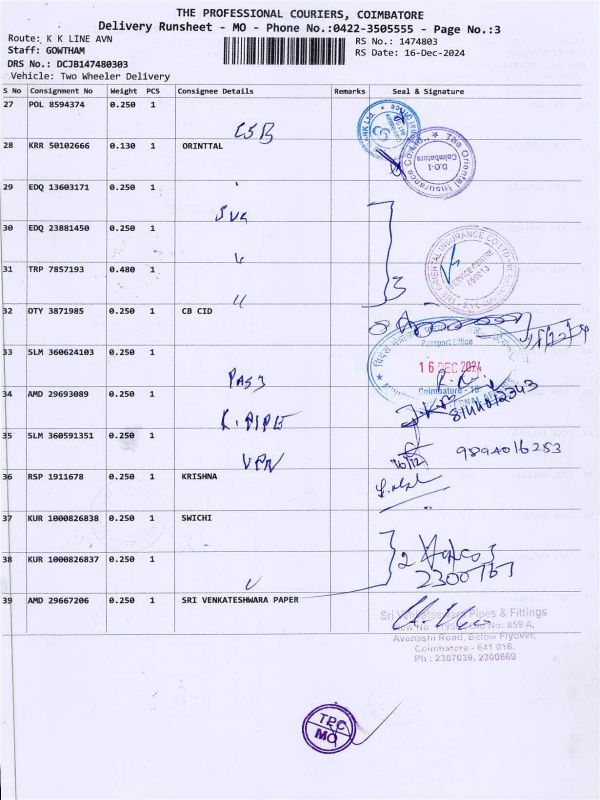 THE PROFESSIONAL COURIERS, COIMBATORE
Delivery Runsheet - MO - Phone No.:0422-3505555 - Page No.:3
Route: K K LINE AVN
RS No.: 1474803
Staff: GOWTHAM
RS Date: 16-Dec-2024
DRS No.: DCJB147480303
Vehicle: Two Wheeler Delivery
S No Consignment No Weight PCS Consignee Details Remarks Seal & Signature
27 POL 8594374 0.250 1
CSB
28 KRR 50102666 0.130 1 ORINTTAL
The Oriental Insurance Co. Ltd.
D.O-1
Coimbatore
29 EDQ 13603171 0.250 1
30 EDQ 23881450 0.250 1
THE ORIENTAL INSURANCE CO LTD
31 TRP 7857193 0.480 1
3
32 OTY 3871985 0.250 1 CB CID
33 SLM 360624103 0.250 1
Passport Office
16 DEC 2024
Coimbatore - 18
PASS
34 AMD 29693089 0.250 1
K. PIPE
35 SLM 360591351 0.250 1
VPN
16/12
9894016283
36 RSP 1911678 0.250 1 KRISHNA
37 KUR 1000826838 0.250 1 SWICHI
38 KUR 1000826837 0.250 1
2
39 AMD 29667206 0.250 1 SRI VENKATESHWARA PAPER
Sri Venkateswara Pipes & Fittings
No: 859 A,
Avanashi Road, Below Flyover,
Coimbatore - 641 018.
Ph : 2387639, 2300869
TPC
MO